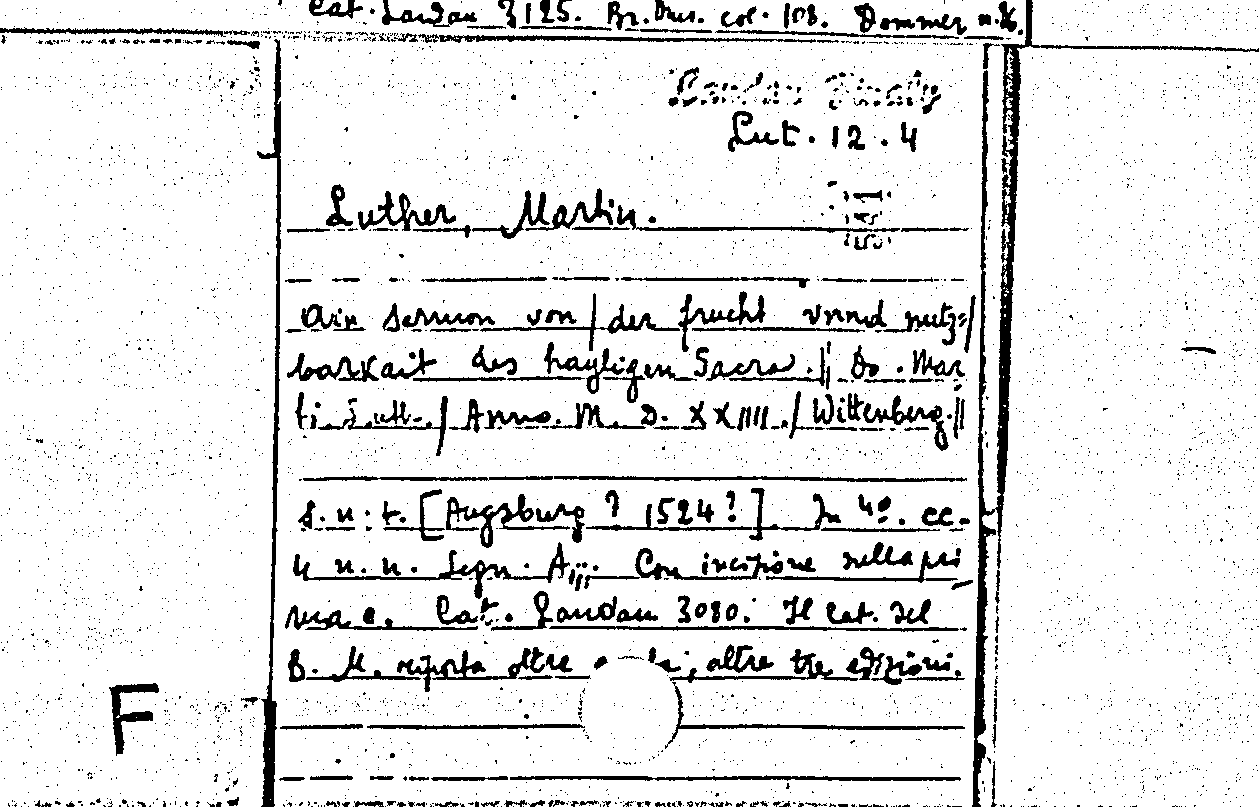 Cat. Landau 3125. Br. Mus. col. 108. Dommer n. 86.
Landau Finaly
Lut. 12. 4
Luther, Martin.
Ain sermon von / der frucht vnnd nutz= /
barkait des hayligen Sacra. || Do. Mar
ti. Lutt. / Anno. M. D. XXIIII. / Wittenberg. ||
s. n. t. [Augsburg ? 1524 ?]. In 4º. cc.
4 n. n. Segn. Aiii. Con incisione nella pri
ma c. Cat. Landau 3080. Il Cat. del
B. M. riporta oltre altre tre edizioni.
F